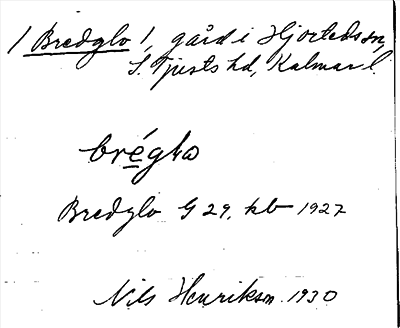 / Bredglo /, gård i Hjorteds sn,
S. Tjusts hd, Kalmar l.
brégλω
Bredglo G 29, kb 1927
Nils Henrikson 1930